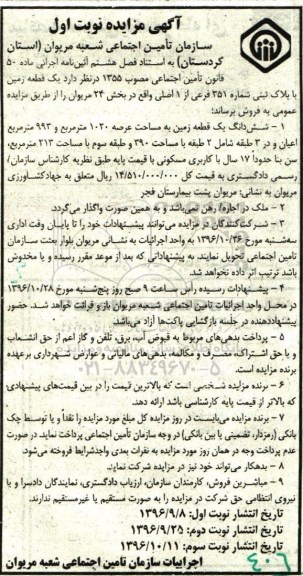 آگهی مزایده نوبت اول
سازمان تأمین اجتماعی شعبه مریوان (استان
کردستان) به استناد فصل هشتم آئین‌نامه اجرائی ماده ۵۰
قانون تأمین اجتماعی مصوب ۱۳۵۵ درنظر دارد یک قطعه زمین
با پلاک ثبتی شماره ۳۵۱ فرعی از ۱ اصلی واقع در بخش ۲۴ مریوان را از طریق مزایده
عمومی به فروش برساند؛
۱ – شش‌دانگ یک قطعه زمین به مساحت عرصه ۱۰۲۰ مترمربع و ۹۹۳ مترمربع
اعیان و در ۳ طبقه شامل ۲ طبقه با مساحت ۳۹۰ و طبقه سوم با مساحت ۲۱۳ مترمربع،
سن بنا حدوداً ۱۷ سال با کاربری مسکونی با قیمت پایه طبق نظریه کارشناس سازمان/
رسمی دادگستری به قیمت کل ۱۴/۵۱۰/۰۰۰/۰۰۰ ریال متعلق به جهادکشاورزی
مریوان به نشانی: مریوان پشت بیمارستان فجر
۲ – ملک در اجاره/ رهن نمی‌باشد و به همین صورت واگذار می‌گردد.
۳ – شرکت‌کنندگان در مزایده می‌توانند پیشنهادات خود را تا پایان وقت اداری
سه‌شنبه مورخ ۱۳۹۶/۱۰/۲۶ به واحد اجرائیات به نشانی مریوان بلوار بعثت سازمان
تامین اجتماعی تحویل نمایند. به پیشنهاداتی که بعد از موعد مقرر رسیده و یا مخدوش
باشد ترتیب اثر داده نخواهد شد.
۴ – پیشنهادات رسیده رأس ساعت ۹ صبح روز پنج‌شنبه مورخ ۱۳۹۶/۱۰/۲۸
در محل واحد اجرائیات تامین اجتماعی شعبه مریوان باز و قرائت خواهد شد. حضور
پیشنهاددهنده در جلسه بازگشایی پاکت‌ها آزاد می‌باشد.
۵ – پرداخت بدهی‌های مربوط به قبوض آب، برق، تلفن و گاز اعم از حق انشعاب
و یا حق اشتراک، مصرف و مکالمه، بدهی‌های مالیاتی و عوارض شهرداری برعهده
برنده مزایده است.
۶ – برنده مزایده شخصی است که بالاترین قیمت را در بین قیمت‌های پیشنهادی
که بالاتر از قیمت پایه کارشناسی باشد ارائه دهد.
۷ – برنده مزایده می‌بایست در روز مزایده کل مبلغ مورد مزایده را نقداً و یا توسط چک
بانکی (رمزدار، تضمینی یا بین بانکی) در وجه سازمان تأمین اجتماعی پرداخت نماید. در صورت
عدم پرداخت وجه در همان روز مورد مزایده به نفرات بعدی واجدشرایط فروخته می‌شود.
۸ – بدهکار می‌تواند خود نیز در مزایده شرکت نماید.
۹ – مباشرین فروش، کارمندان سازمان، ارزیاب دادگستری، نمایندگان دادسرا و یا
نیروی انتظامی حق شرکت در مزایده را به صورت مستقیم یا غیرمستقیم ندارند.
تاریخ انتشار نوبت اول: ۱۳۹۶/۹/۸
تاریخ انتشار نوبت دوم: ۱۳۹۶/۹/۲۵
تاریخ انتشار نوبت سوم: ۱۳۹۶/۱۰/۱۱
اجراییات سازمان تأمین اجتماعی شعبه مریوان
۴۰۶
۰۲۱-۸۸۳۴۹۶۷۰-۵